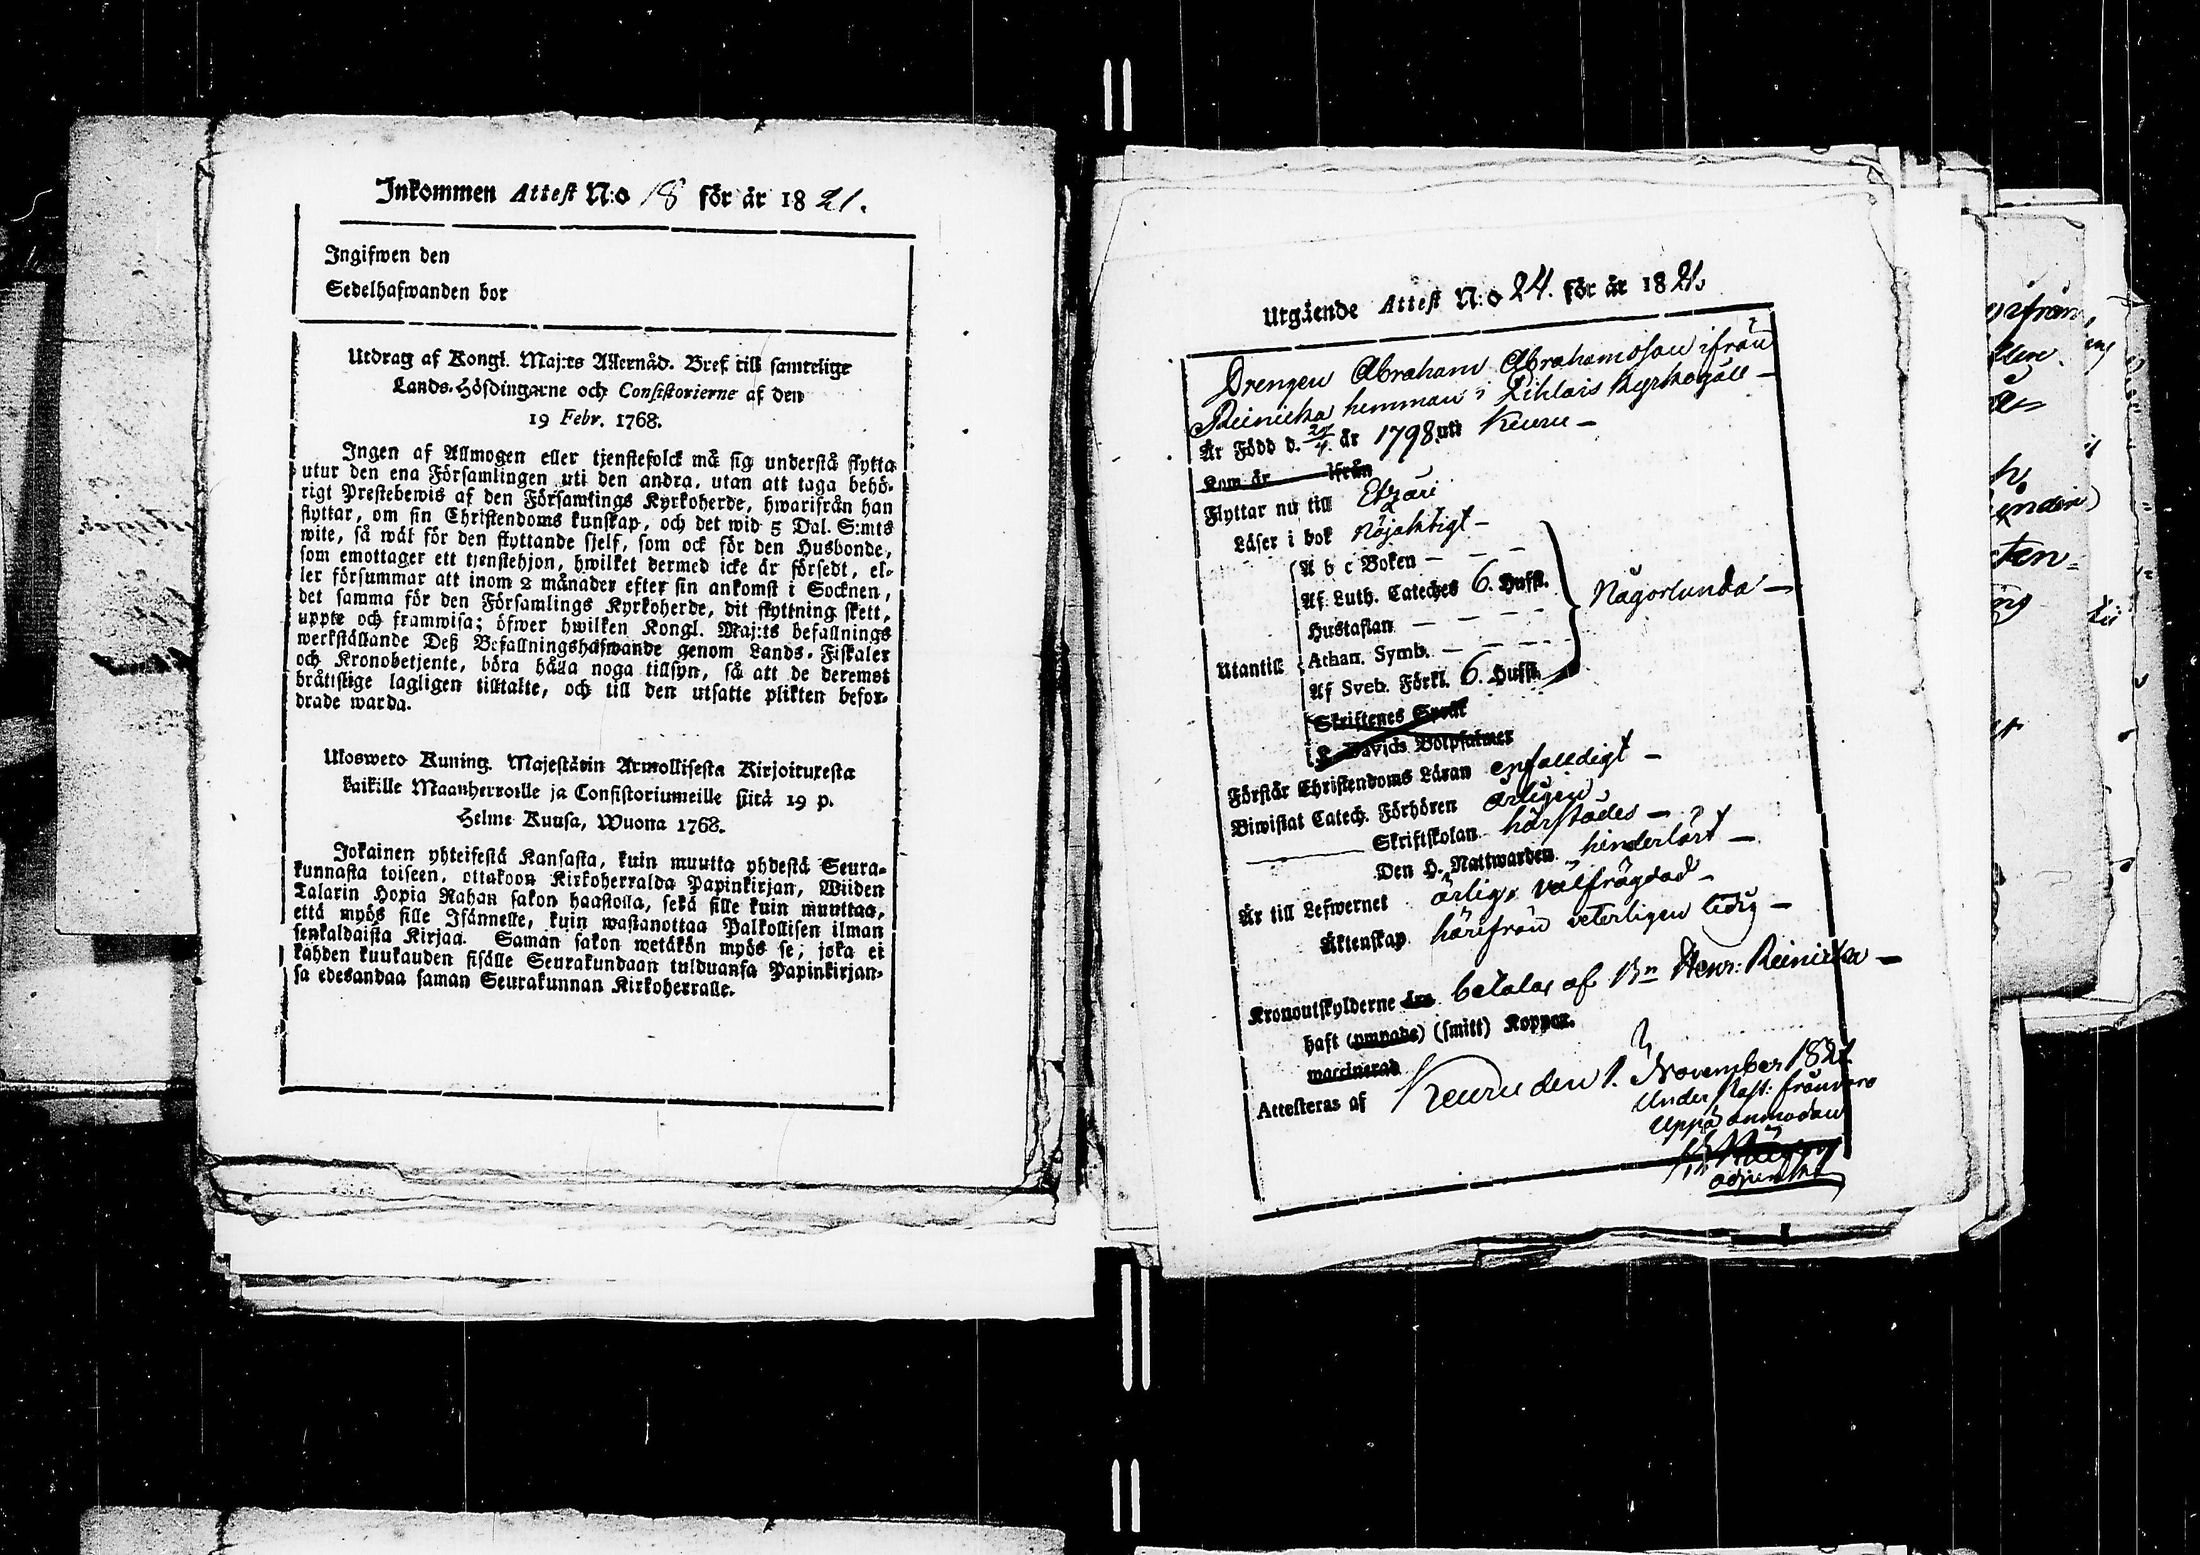 Inkommen Attest N:o 18 för år 1821.
Ingifwen den
Sedelhafwanden bor
Utdrag af Kongl. Maj:ts Allernåd. Bref till samtelige
Lands-Höfdingarne och Consistorierne af den
19 Febr. 1768.
Ingen af Allmogen eller tjenstefolck må sig understå flytta
utur den ena Församlingen uti den andra, utan att taga behö-
rigt Prestebewis af den Församlings Kyrkoherde, hwarifrån han
flyttar, om sin Christendoms kunskap, och det wid 5 Dal. S:mts
wite, så wäl för den flyttande sjelf, som ock för den Husbonde,
som emottager ett tjenstehjon, hwilket dermed icke är försedt, el-
ler försummar att inom 2 månader efter sin ankomst i Socknen,
det samma för den Församlings Kyrkoherde, dit flyttning skett,
uppte och framwisa; öfwer hwilken Kongl. Maj:ts befallnings
werkställande Deß Befallningshafwande genom Lands-Fiskaler
och Kronobetjente, böra hålla noga tillsyn, så att de deremot
bråtislige lagligen tilltalte, och till den utsatte plikten befor-
drade warda.
Ulosweto Kuning. Majestätin Armollisesta Kirjoituresta
kaikille Maanherroille ja Consistoriumeille siitä 19 p.
Helme Kuusa, Wuona 1768.
Jokainen yhteisestä Kansasta, kuin muutta yhdestä Seura-
kunnasta toiseen, ottakoon Kirkoherralda Papinkirjan, Wiiden
Talarin Hopia Rahan sakon haastolla, sekä sille kuin muuttaa,
että myös sille Isännelle, kuin wastanottaa Palkollisen ilman
senkaldaista Kirjaa. Saman sakon wetäkön myös se, joka ei
kahden kuukauden sisälle Seurakundaan tulduansa Papinkirjan-
sa edesandaa saman Seurakunnan Kirkoherralle.
Utgående Attest N:o 24. för år 1821.
Drengen Abraham Abrahamsson ifrån
Reinicka hemman i Pihlais Kyrkogäll –
Är Född d. 27/4. år 1798 uti Keuru –
Kom år ifrån
Flyttar nu till Etzäri
Läser i bok nöjaktigt –
A b c Boken –
Af Luth. Cateches 6. Hufst.
Hustaflan – – –
Någorlunda –
Utantill
Athan. Symb. – – –
Af Sveb. Förkl. 6. Hufst.
Skriftenes Språk
Förstår Christendoms Läran enfalldigt –
Biwistat Catech. Förhören årligen
Skriftskolan härstädes –
Den H. Nattwarden hinderlöst –
Är till Lefwernet ärlig, välfrägdad –
Äktenskap härifrån veterligen ledig –
Kronoutskylderne äro betalas af Bn Henr: Reinicka –
haft (ympade) (smitt) Koppor.
waccinerad
Attesteras af Keuru den 1. November 1821
Under Past: frånvaro
Uppå anmodan